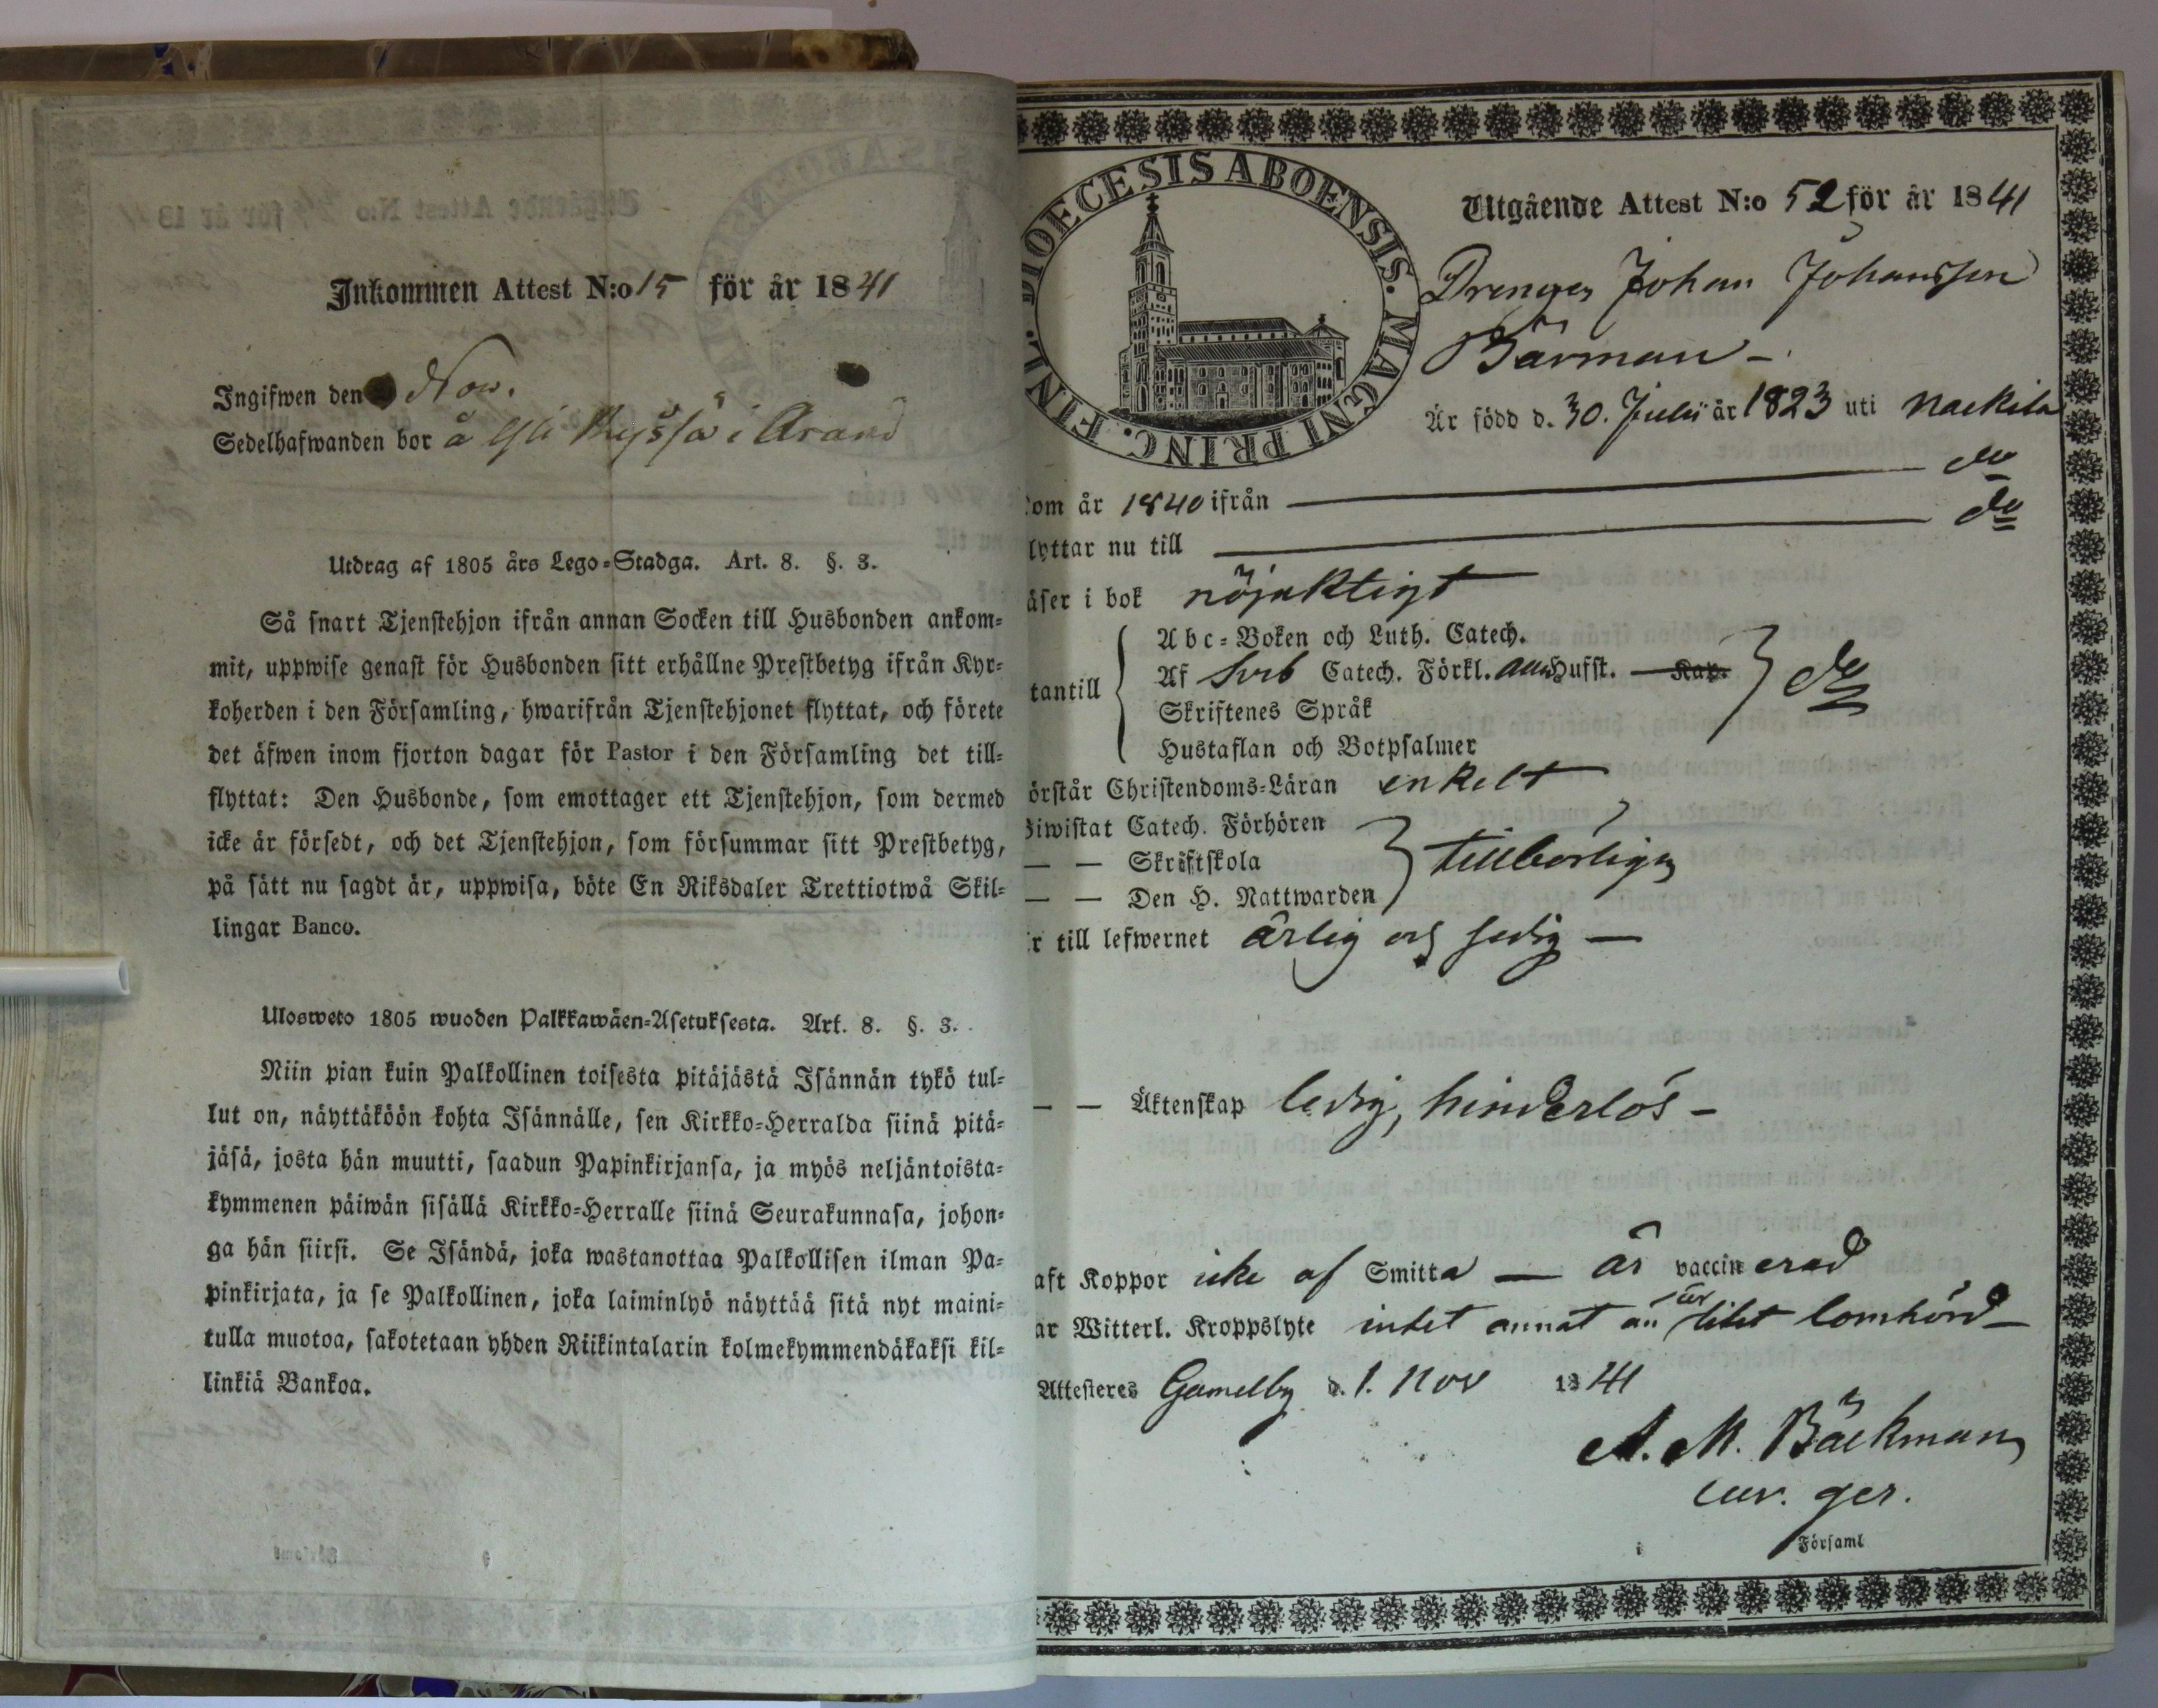 Inkommen Attest N:o 15 för år 1841
Ingifwen den Nov.
Sedelhafwanden bor å i
Utdrag af 1805 års Lego-Stadga. Art. 8. §. 3.
Så snart Tjenstehjon ifrån annan Socken till Husbonden ankom-
mit, uppwise genast för Husbonden sitt erhållne Prestbetyg ifrån Kyr-
koherden i den Församling, hwarifrån Tjenstehjonet flyttat, och förete
det äfwen inom fjorton dagar för Pastor i den Församling det till-
flyttat: Den Husbonde, som emottager ett Tjenstehjon, som dermed
icke är försedt, och det Tjenstehjon, som försummar sitt Prestbetyg,
på sätt nu sagdt är, uppwisa, böte En Riksdaler Trettiotwå Skil-
lingar Banco.
Ulosweto 1805 wuoden Palkkawäen-Asetuksesta. Art. 8. §. 3.
Niin pian kuin Palkollinen toisesta pitäjästä Isännän tykö tul-
lut on, näyttäköön kohta Isännälle, sen Kirkko-Herralda siinä pitä-
jäsä, josta hän muutti, saadun Papinkirjansa, ja myös neljäntoista-
kymmenen päiwän sisällä Kirkko-Herralle siinä Seurakunnasa, johon-
ga hän siirsi. Se Isändä, joka wastanottaa Palkollisen ilman Pa-
pinkirjata, ja se Palkollinen, joka laiminlyö näyttää sitä nyt maini-
tulla muotoa, sakotetaan yhden Riikintalarin kolmekymmendäkaksi kil-
linkiä Bankoa.
DIOECESIS ABOENSIS. MAGNI PRINC. FINL.
Utgående Attest N:o 52 för år 1841
Drengen Johan Johansson
Bärman –
Är född d. 30. Julii år 1823 uti Nackila
om år 1840 ifrån do
lyttar nu till do
äser i bok nöjaktigt
tantill
Abc-Boken och Luth. Catech.
Af Svb Catech. Förkl. Husst. Kap. do
Skriftenes Språk
Hustaflan och Botpsalmer
örstår Christendoms-Läran enkelt
iwistat Catech. Förhören
— — Skriftskola tillbörligen
— — Den H. Nattwarden
r till lefwernet ärlig och sedig —
— — Äktenskap ledig, hinderlös –
aft Koppor icke af Smitta — är vaccinerad
ar Witterl. Kroppslyte intet annat än är litet lomhörd –
Attesteres Gamelby d. 1. Nov 1841
A. M. Bäckman
cur. ger.
Församl